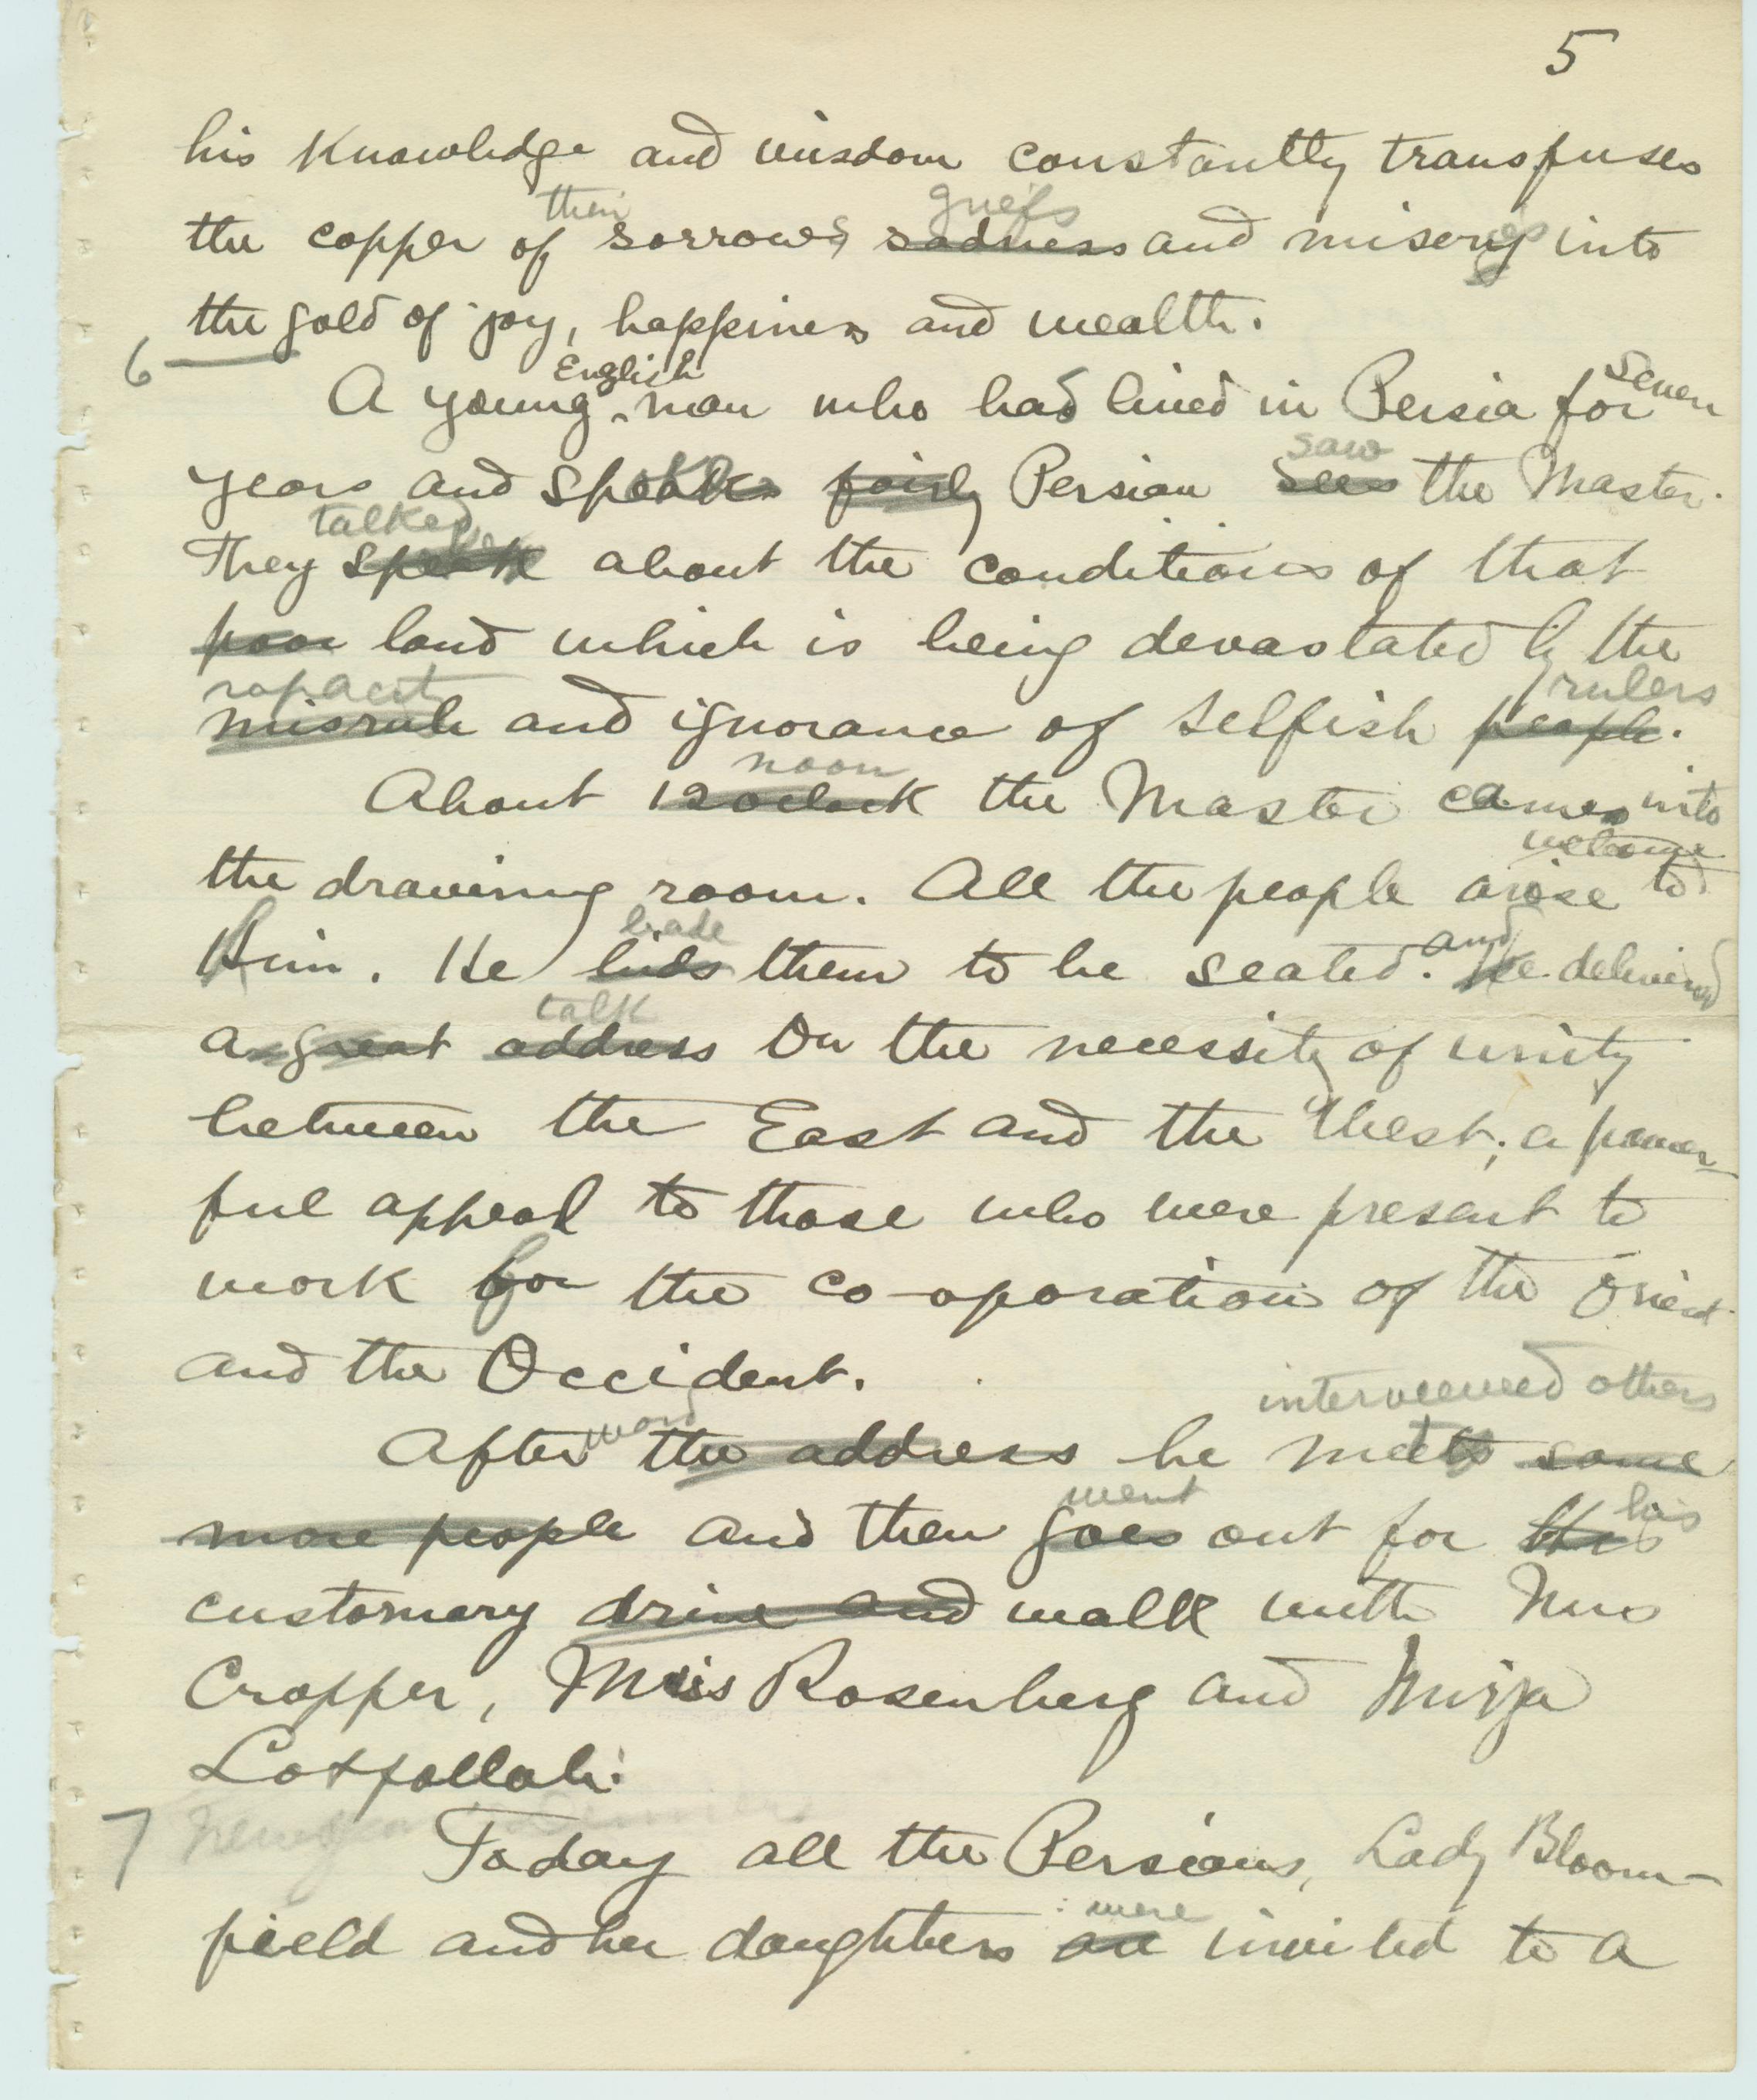 5
his knowledge and wisdom constantly transfuses
their griefs
the copper of sorrows, sadness and misery into
the gold of joy, happiness and wealth.
6
English
A young man who had lived in Persia for seven
saw
years and speaks fairly Persian sees the Master.
talked
They speak about the conditions of that
poor land which is being devastated by the
rapacity rulers
misrule and ignorance of selfish people.
noon
About 12 oclock the Master came into
welcome
the drawing room. All the people arose to
bade and
Him. He bids them to be seated. He delivered
talk
a great address on the necessity of unity
between the East and the West; a power-
ful appeal to those who were present to
work for the co-oporation of the Orient
and the Occident.
interviewed others
ward
After the address he meets some
went his
more people and then goes out for His
customary drive and walk with Mrs
Cropper, Miss Rosenberg and Mirza
Lotfollah.
7
Today all the Persians, Lady Bloom-
were
field and her daughters are invited to a